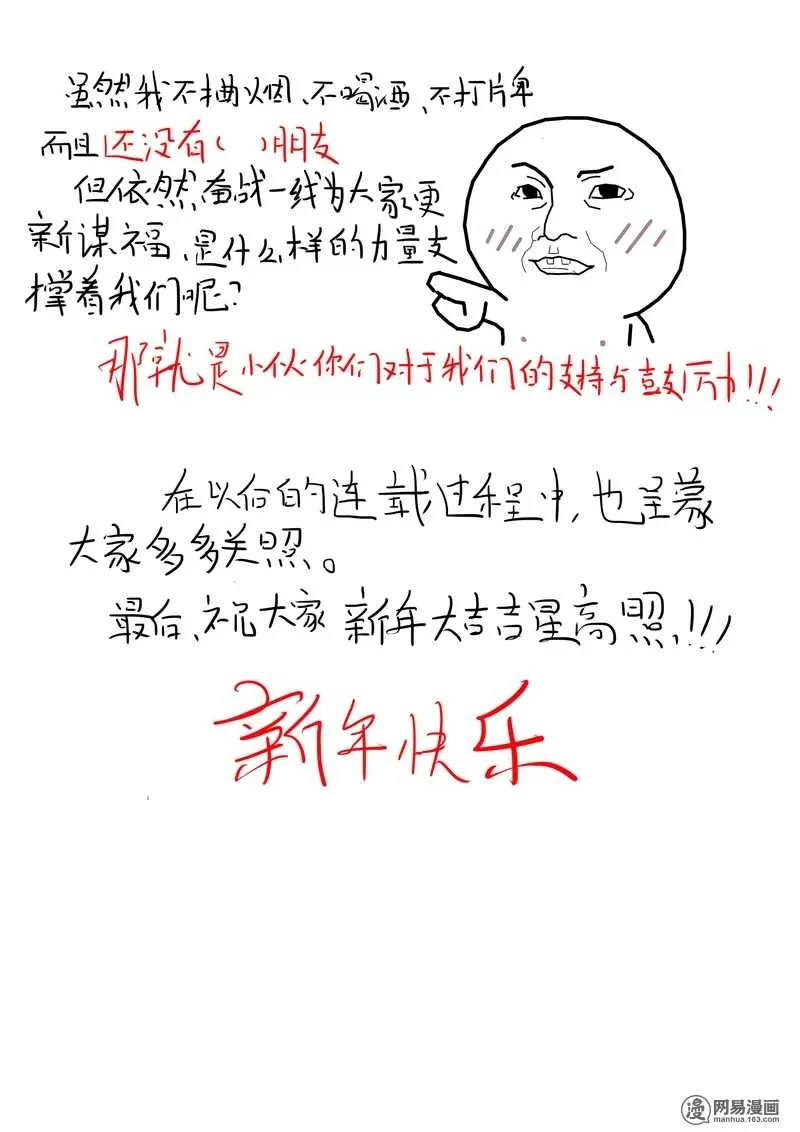 虽然我不抽烟、不喝酒、不打牌
而且还没有( )朋友
但依然奋战一线为大家更
新谋福、是什么样的力量支
撑着我们呢?
那就是小伙你们对于我们的支持与鼓励!!!
在以后的连载过程中,也呈蒙
大家多多关照。
最后、祝大家新年大吉吉星高照、!!!
新年快乐
漫 网易漫画
manhua.163.com